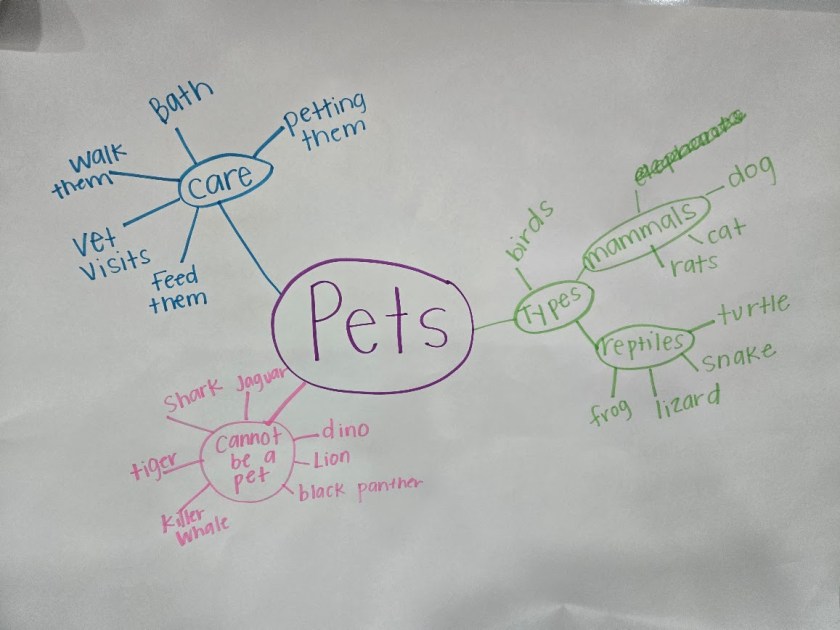 Bath
petting
them
walk
them
care
vet
visits
Feed
them
Pets
Types
birds
mammals
dog
cat
rats
reptiles
turtle
snake
lizard
frog
cannot
be a
pet
Shark
Jaguar
tiger
Killer
Whale
dino
Lion
black panther